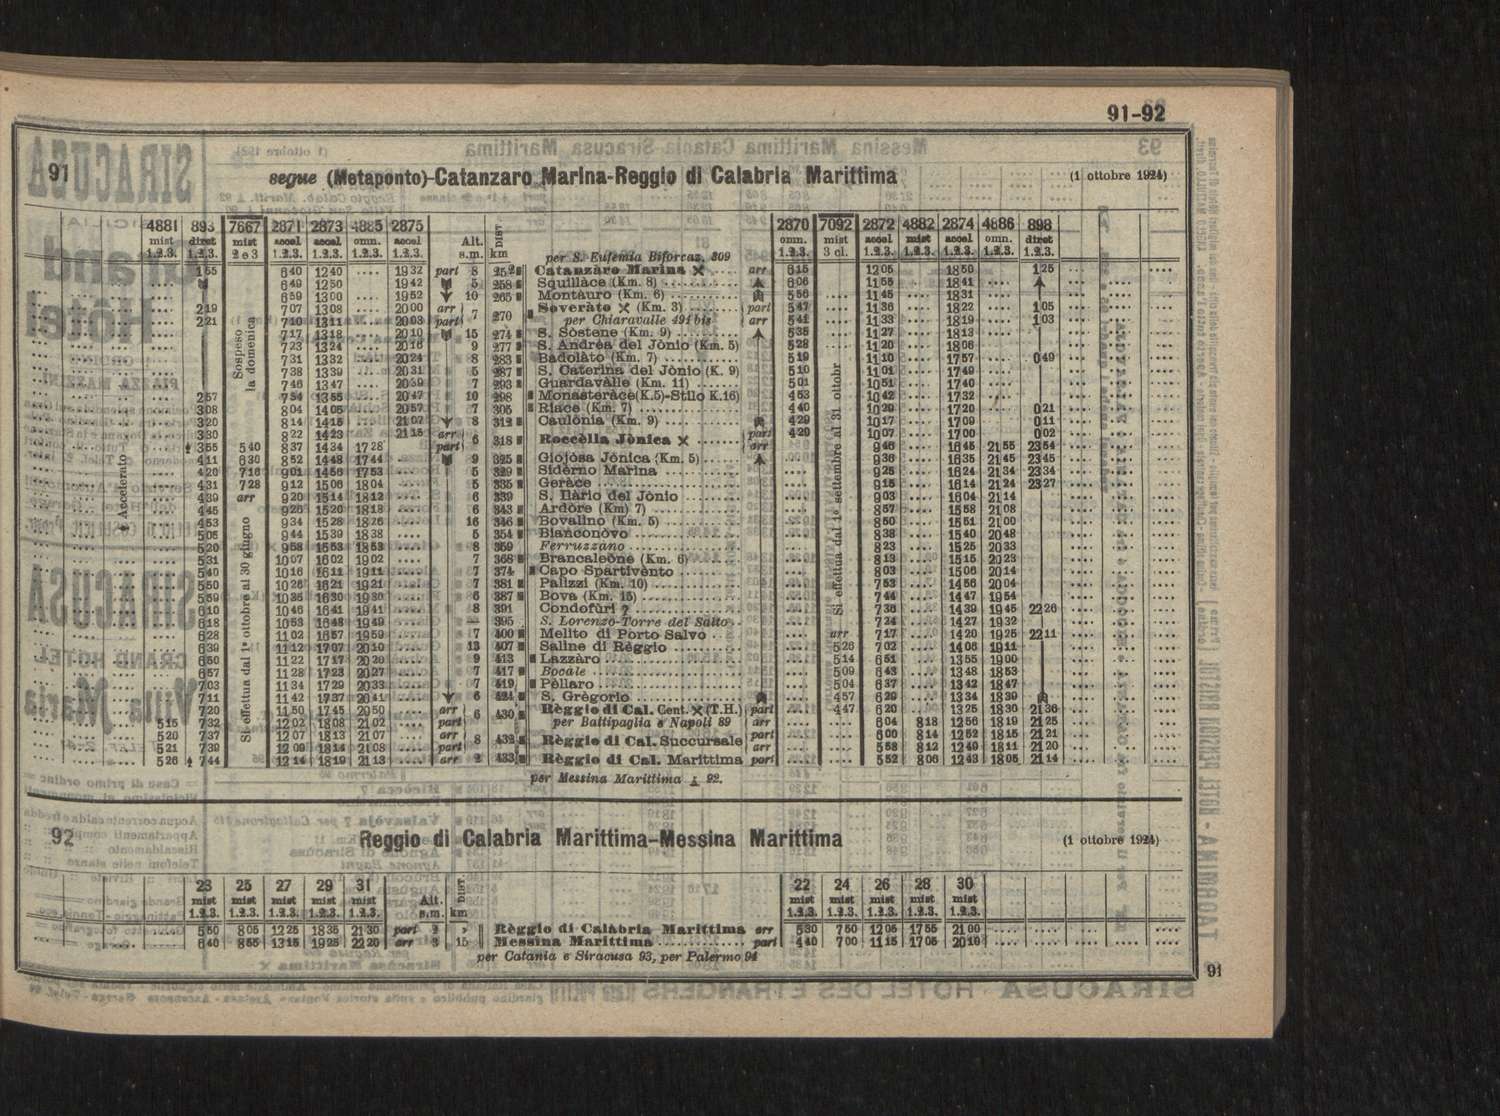 91-92
91 segue (Metaponto)-Catanzaro Marina-Reggio di Calabria Marittima (1 ottobre 1924)
4881 893 7667 2871 2873 4885 2875 2870 7092 2872 4882 2874 4886 898
mist diret mist accel accel omn. accel Alt. DIST. omn. mist accel mist accel omn. diret
1.2.3. 1.2.3. 2 e 3 1.2.3. 1.2.3. 1.2.3. 1.2.3. s.m. km per S. Eufemia Biforcaz. 309 1.2.3. 3 cl. 1.2.3. 1.2.3. 1.2.3. 1.2.3. 1.2.3.
1 55 6 40 12 40 .... 19 32 part 8 252 Catanzàro Marina arr 6 15 12 05 18 50 1 25
6 49 12 50 .... 19 42 5 258 Squillàce (Km. 8) 6 06 11 55 18 41
6 59 13 00 .... 19 52 10 265 Montàuro (Km. 6) 5 56 11 45 18 31
2 19 7 07 13 08 .... 20 00 arr 7 270 Soveràto (Km. 3) part 5 47 11 36 18 22 1 05
2 21 7 10 13 11 .... 20 03 part per Chiaravalle 491 bis arr 5 41 11 33 18 19 1 03
7 17 13 18 .... 20 10 15 274 S. Sòstene (Km. 9) 5 35 11 27 18 13
7 23 13 24 .... 20 16 9 277 S. Andrèa del Jònio (Km. 5) 5 28 11 20 18 06
7 31 13 32 .... 20 24 8 283 Badolàto (Km. 7) 5 19 11 10 17 57 0 49
7 38 13 39 .... 20 31 5 287 S. Caterina del Jònio (K. 9) 5 10 11 01 17 49
7 46 13 47 .... 20 39 7 293 Guardavàlle (Km. 11) 5 01 10 51 17 40
2 57 7 54 13 55 .... 20 47 10 298 Monasteràce(K.5)-Stilo K.16) 4 53 10 42 17 32
3 08 8 04 14 05 .... 20 57 7 305 Riace (Km. 7) 4 40 10 29 17 20 0 21
3 20 8 14 14 15 .... 21 07 8 312 Caulònia (Km. 9) 4 29 10 17 17 09 0 11
3 30 8 22 14 23 .... 21 15 arr 6 318 Roccèlla Jònica part 4 20 10 07 17 00 0 02
3 55 5 40 8 37 14 34 17 28 part arr 9 46 16 45 21 55 23 54
4 11 6 30 8 52 14 48 17 44 9 325 Giojòsa Jónica (Km. 5) 9 36 16 35 21 45 23 45
4 20 7 16 9 01 14 56 17 53 5 329 Sidèrno Marina 9 25 16 24 21 34 23 34
4 31 7 28 9 12 15 06 18 04 5 335 Geràce 9 15 16 14 21 24 23 27
4 39 arr 9 20 15 14 18 12 6 339 S. Ilàrio del Jònio 9 03 16 04 21 14
4 45 9 26 15 20 18 18 6 343 Ardòre (Km) 7) 8 57 15 58 21 08
4 53 9 34 15 28 18 26 16 346 Bovalino (Km. 5) 8 50 15 51 21 00
5 05 9 44 15 39 18 38 5 354 Bianconòvo 8 38 15 40 20 48
5 20 9 58 15 53 18 53 8 359 Ferruzzano 8 23 15 25 20 33
5 31 10 07 16 02 19 02 7 368 Brancaleòne (Km. 6) 8 13 15 15 20 23
5 40 10 16 16 11 19 11 7 374 Capo Spartivènto 8 03 15 06 20 14
5 50 10 26 16 21 19 21 7 381 Palizzi (Km. 10) 7 53 14 56 20 04
6 00 10 35 16 30 19 30 6 387 Bova (Km. 15) 7 44 14 47 19 54
6 10 10 46 16 41 19 41 8 391 Condofùri ? 7 36 14 39 19 45 22 26
6 18 10 53 16 48 19 49 — 395 S. Lorenzo-Torre del Salto 7 24 14 27 19 32
6 28 11 02 16 57 19 59 7 400 Melito di Porto Salvo arr 7 17 14 20 19 25 22 11
6 39 11 12 17 07 20 10 13 407 Saline di Règgio 5 26 7 02 14 06 19 11
6 50 11 22 17 17 20 20 9 413 Lazzàro 5 14 6 51 13 55 19 00
6 57 11 28 17 23 20 27 7 417 Bocale 5 09 6 43 13 48 18 53
7 03 11 34 17 29 20 33 7 419 Pèllaro 5 04 6 37 13 42 18 47
7 11 11 42 17 37 20 41 6 424 S. Grègorio 4 57 6 29 13 34 18 39
7 20 11 50 17 45 20 50 arr 6 430 Règgio di Cal. Cent. (T.H.) part 4 47 6 20 13 25 18 30 21 36
5 15 7 32 12 02 18 08 21 02 part per Battipaglia e Napoli 89 arr 6 04 8 18 12 56 18 19 21 25
5 20 7 37 12 07 18 13 21 07 arr 8 432 Règgio di Cal. Succursale part 6 00 8 14 12 52 18 15 21 21
5 21 7 39 12 09 18 14 21 08 part arr 5 58 8 12 12 49 18 11 21 20
5 26 7 44 12 14 18 19 21 13 arr 2 433 Règgio di Cal. Marittima part 5 52 8 06 12 43 18 05 21 14
per Messina Marittima 92.
Accelerato
Sospeso la domenica
Si effettua dal 1º ottobre al 30 giugno
Si effettua dal 1º settembre al 31 ottobr
92 Reggio di Calabria Marittima-Messina Marittima (1 ottobre 1924)
23 25 27 29 31 DIST. 22 24 26 28 30
mist mist mist mist mist Alt. mist mist mist mist mist
1.2.3. 1.2.3. 1.2.3. 1.2.3. 1.2.3. s.m. km 1.2.3. 1.2.3. 1.2.3. 1.2.3. 1.2.3.
5 50 8 05 12 25 18 35 21 30 part 2 » Règgio di Calàbria Marittima arr 5 30 7 50 12 05 17 55 21 00
6 40 8 55 13 15 19 25 22 20 arr 3 15 Messina Marittima part 4 40 7 00 11 15 17 05 20 10
per Catania e Siracusa 93, per Palermo 94
91